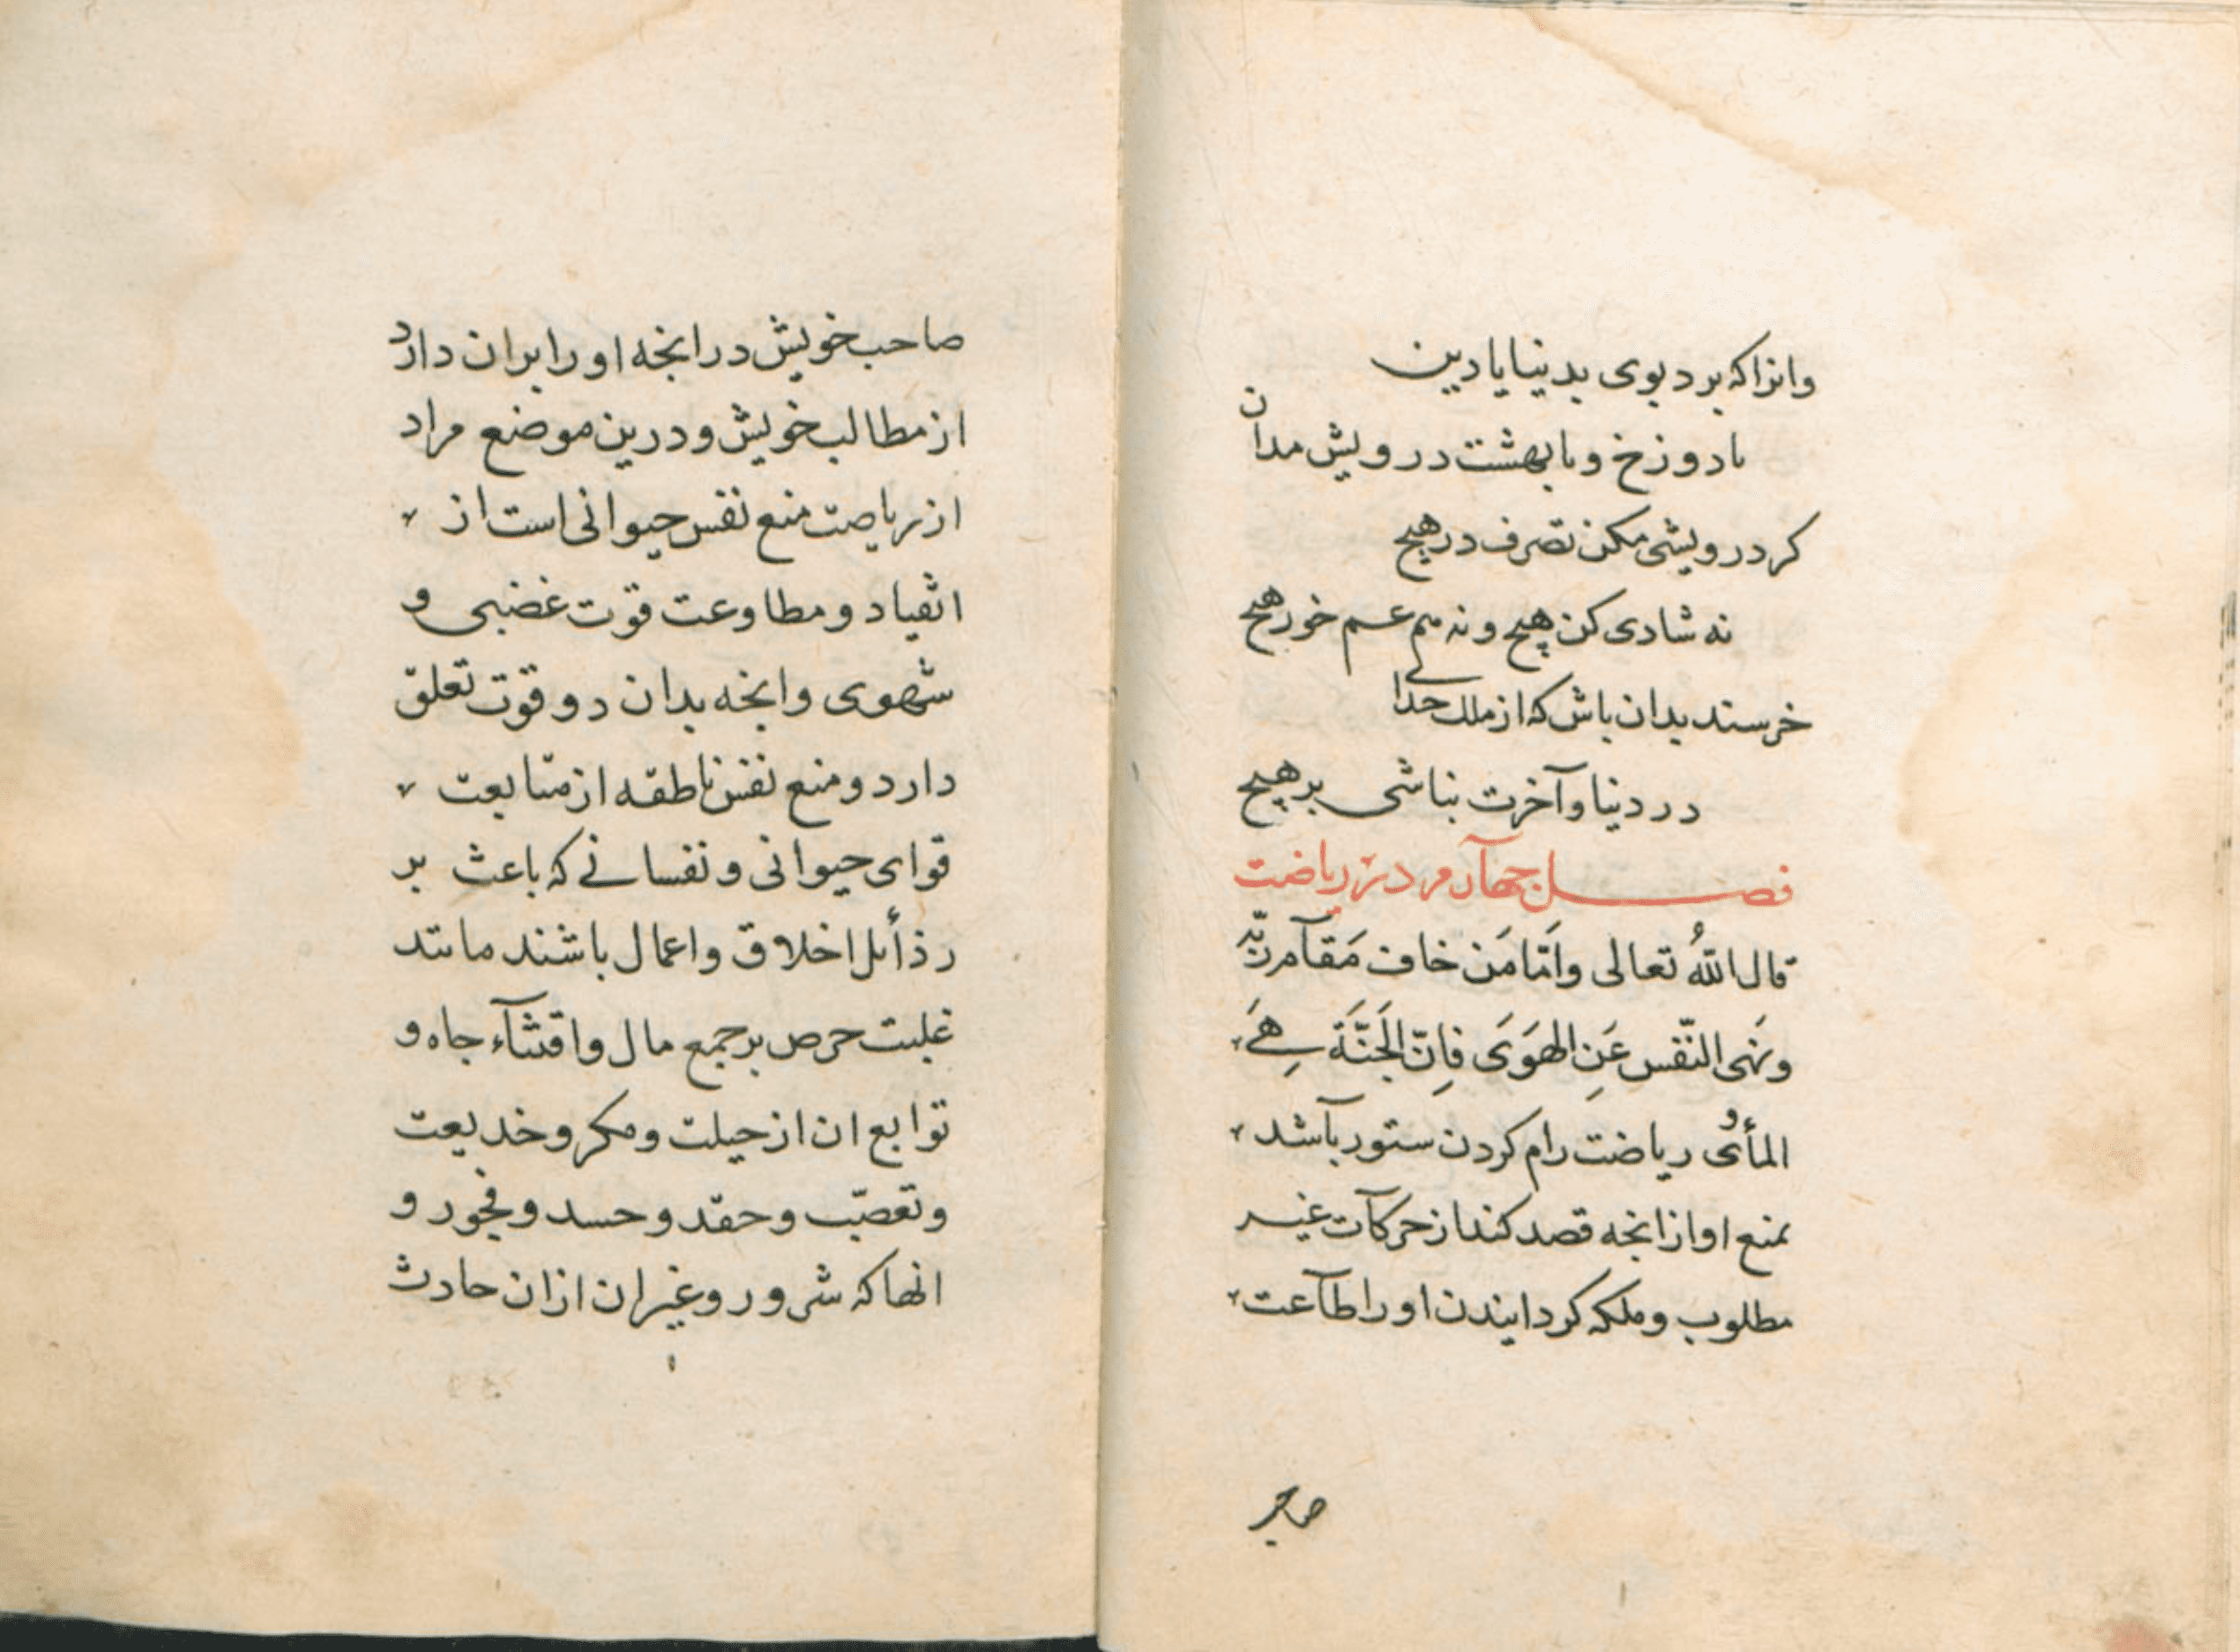 وانرا که برد بوی بدینا یا دین
با دوزخ و با بهشت درویش مدان
کر درویشی مکن تصرف در هیچ
نه شادی کن بهیچ و نه هم غم خور هیچ
خرسند بدان باش که از ملک خدای
در دنیا و آخرت نباشی بر هیچ
فصل چهآرم در ریاضت
قال اللهُ تعالی وَاَمّا مَن خاف مَقآم ربّه
ونَهی النّفس عَنِ الهَوَی فَاِنّ الجَنَّةَ هِیَ
المأوی ریاضت رام کردن ستور بآشد
بمنع او از انچه قصد کند از حرکآت غیر
مطلوب و ملکه کردانیدن او را طآعت
صاحب
صاحب خویش در انچه او را بران دارد
از مطالب خویش و درین موضع مراد
از ریاضت منع نفس حیوانی است از
انقیاد و مطاوعت قوّت غضبی و
شهوی و انچه بدان دو قوّت تعلق
دارد و منع نفس ناطقه از متابعت
قوای حیوانی و نفسانی که باعث بر
رذائل اخلاق و اعمال باشند مانند
غلبت حرص بر جمع مال و اقتنآء جاه و
توابع ان از حیلت و مکر و خدیعت
و تعصّب و حقد و حسد و فجور و
انهماک شرور و غیر ان ازان حادث